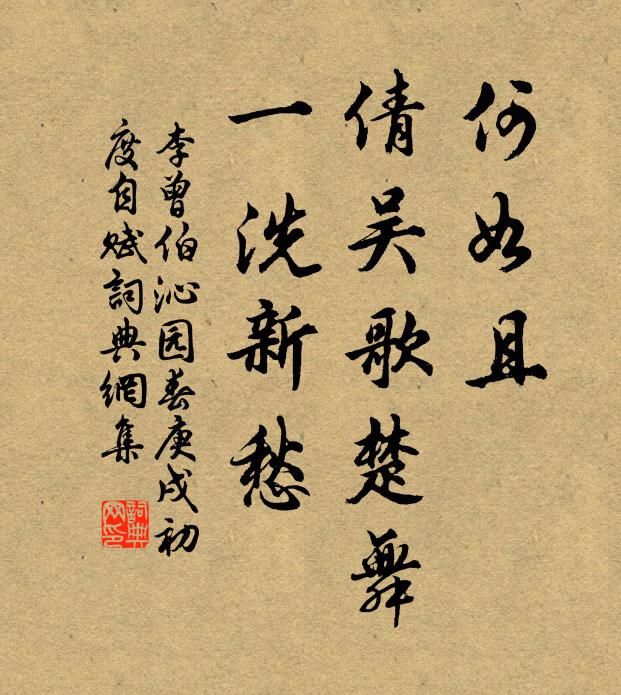 何如且
倩吴歌楚舞
一洗新愁
李曾伯沁园春庚戌初
度自赋詞典網集
詞典
网印